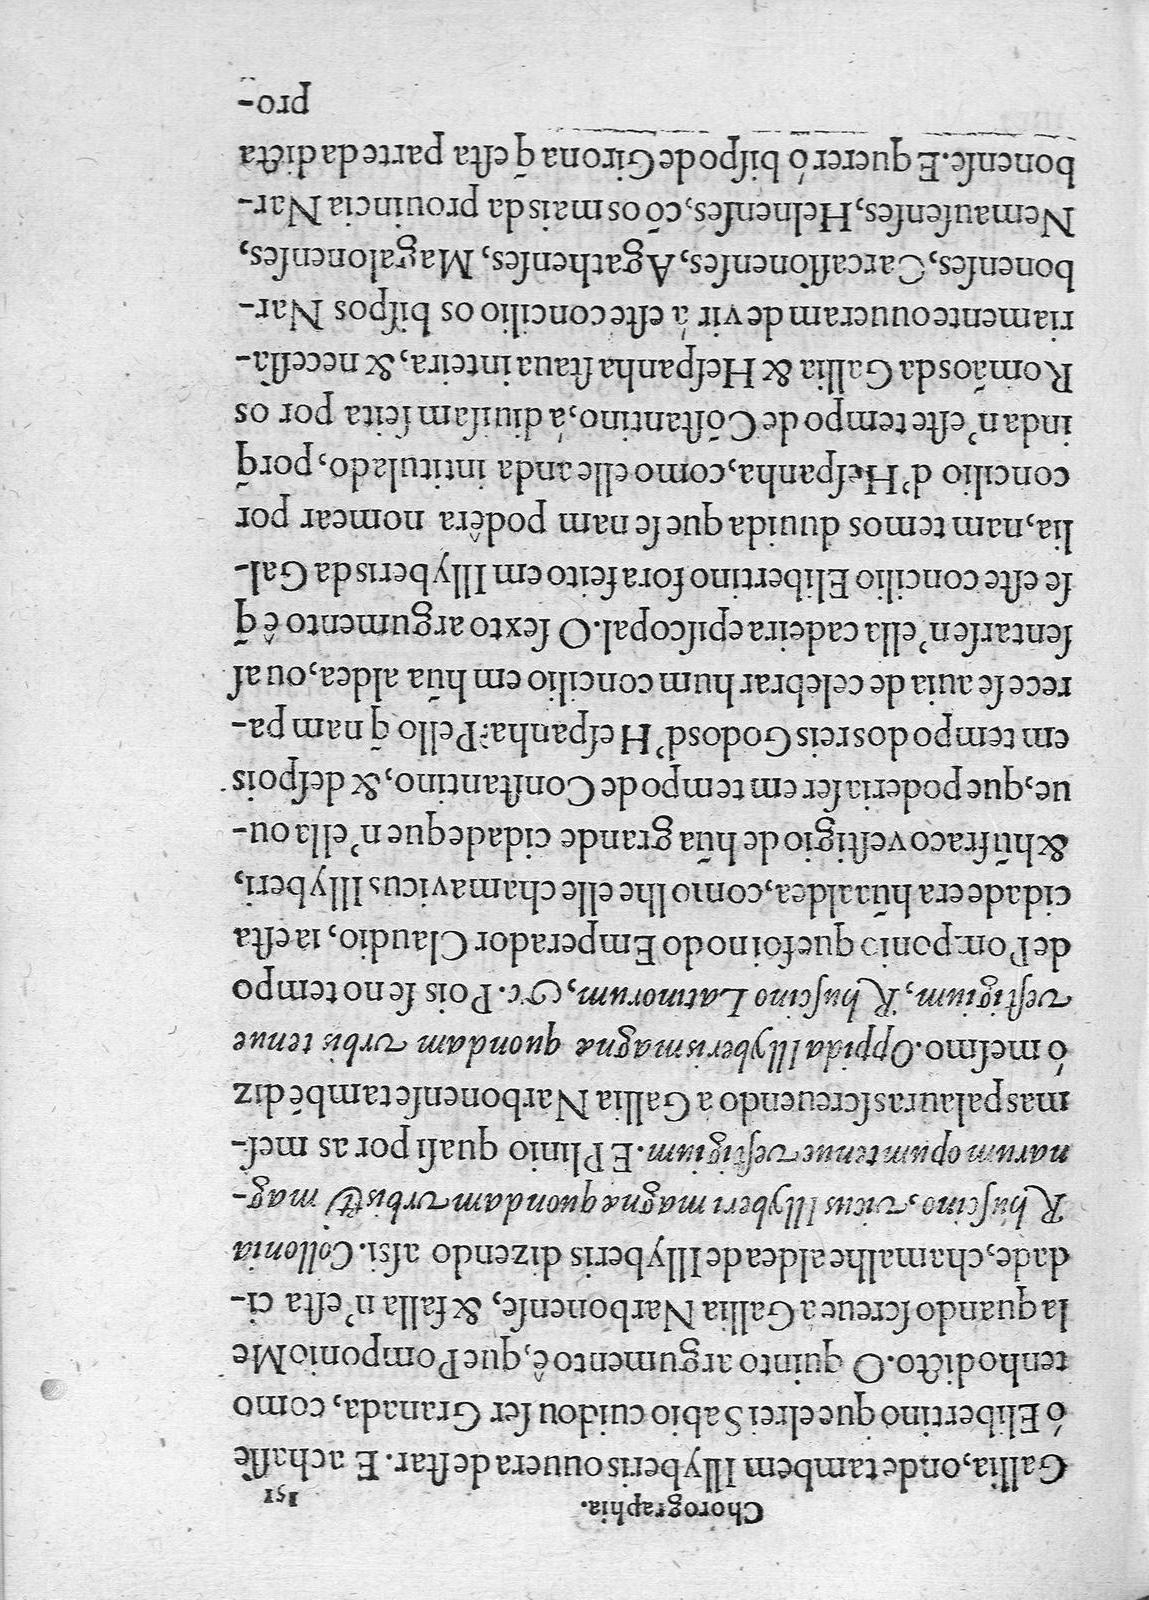 Chorographia. 151
Gallia, onde tambem Illyberis ouuera deſtar. E achaſſe
ó Elibertino que elrei Sabio cuidou ſer Granada, como
tenho dicto. O quinto argumento ê, que Pomponio Me
la quando ſcreue a Gallia Narbonenſe, & falla n'eſta ci-
dade, chamalhe aldea de Illyberis dizendo aſsi. Collonia
Rhuſcino, vicus Illyberi magnæ quondam vrbis & mag-
narum opum tenue veſtigium. E Plinio quaſi por as meſ-
mas palauras ſcreuendo a Gallia Narbonenſe tambẽ diz
ó meſmo. Oppida Illyberis magnæ quondam vrbis tenue
veſtigium, Rhuſcino Latinorum, &c. Pois ſe no tempo
de Pomponio que foi no do Emperador Claudio, ia eſta
cidade era hũa aldea, como lhe elle chama vicus Illyberi,
& hũ fraco veſtigio de hũa grande cidade que n'ella ou-
ue, que poderia ſer em tempo de Conſtantino, & deſpois
em tempo dos reis Godos d'Heſpanha? Pello q̃ nam pa-
rece ſe auia de celebrar hum concilio em hũa aldea, ou aſ
ſentarſe n'ella cadeira epiſcopal. O ſexto argumento ê q̃
ſe eſte concilio Elibertino fora feito em Illyberis da Gal-
lia, nam temos duuida que ſe nam podêra nomear por
concilio d'Heſpanha, como elle anda intitulado, porq̃
inda n'eſte tempo de Cõſtantino, á diuiſam feita por os
Romãos da Gallia & Heſpanha ſtaua inteira, & neceſſa-
riamente ouueram de vir á eſte concilio os biſpos Nar-
bonenſes, Carcaſſonenſes, Agathenſes, Magalonenſes,
Nemauſenſes, Helnenſes, cõ os mais da prouincia Nar-
bonenſe. E querer ó biſpo de Girona q̃ eſta parte da dicta
pro-